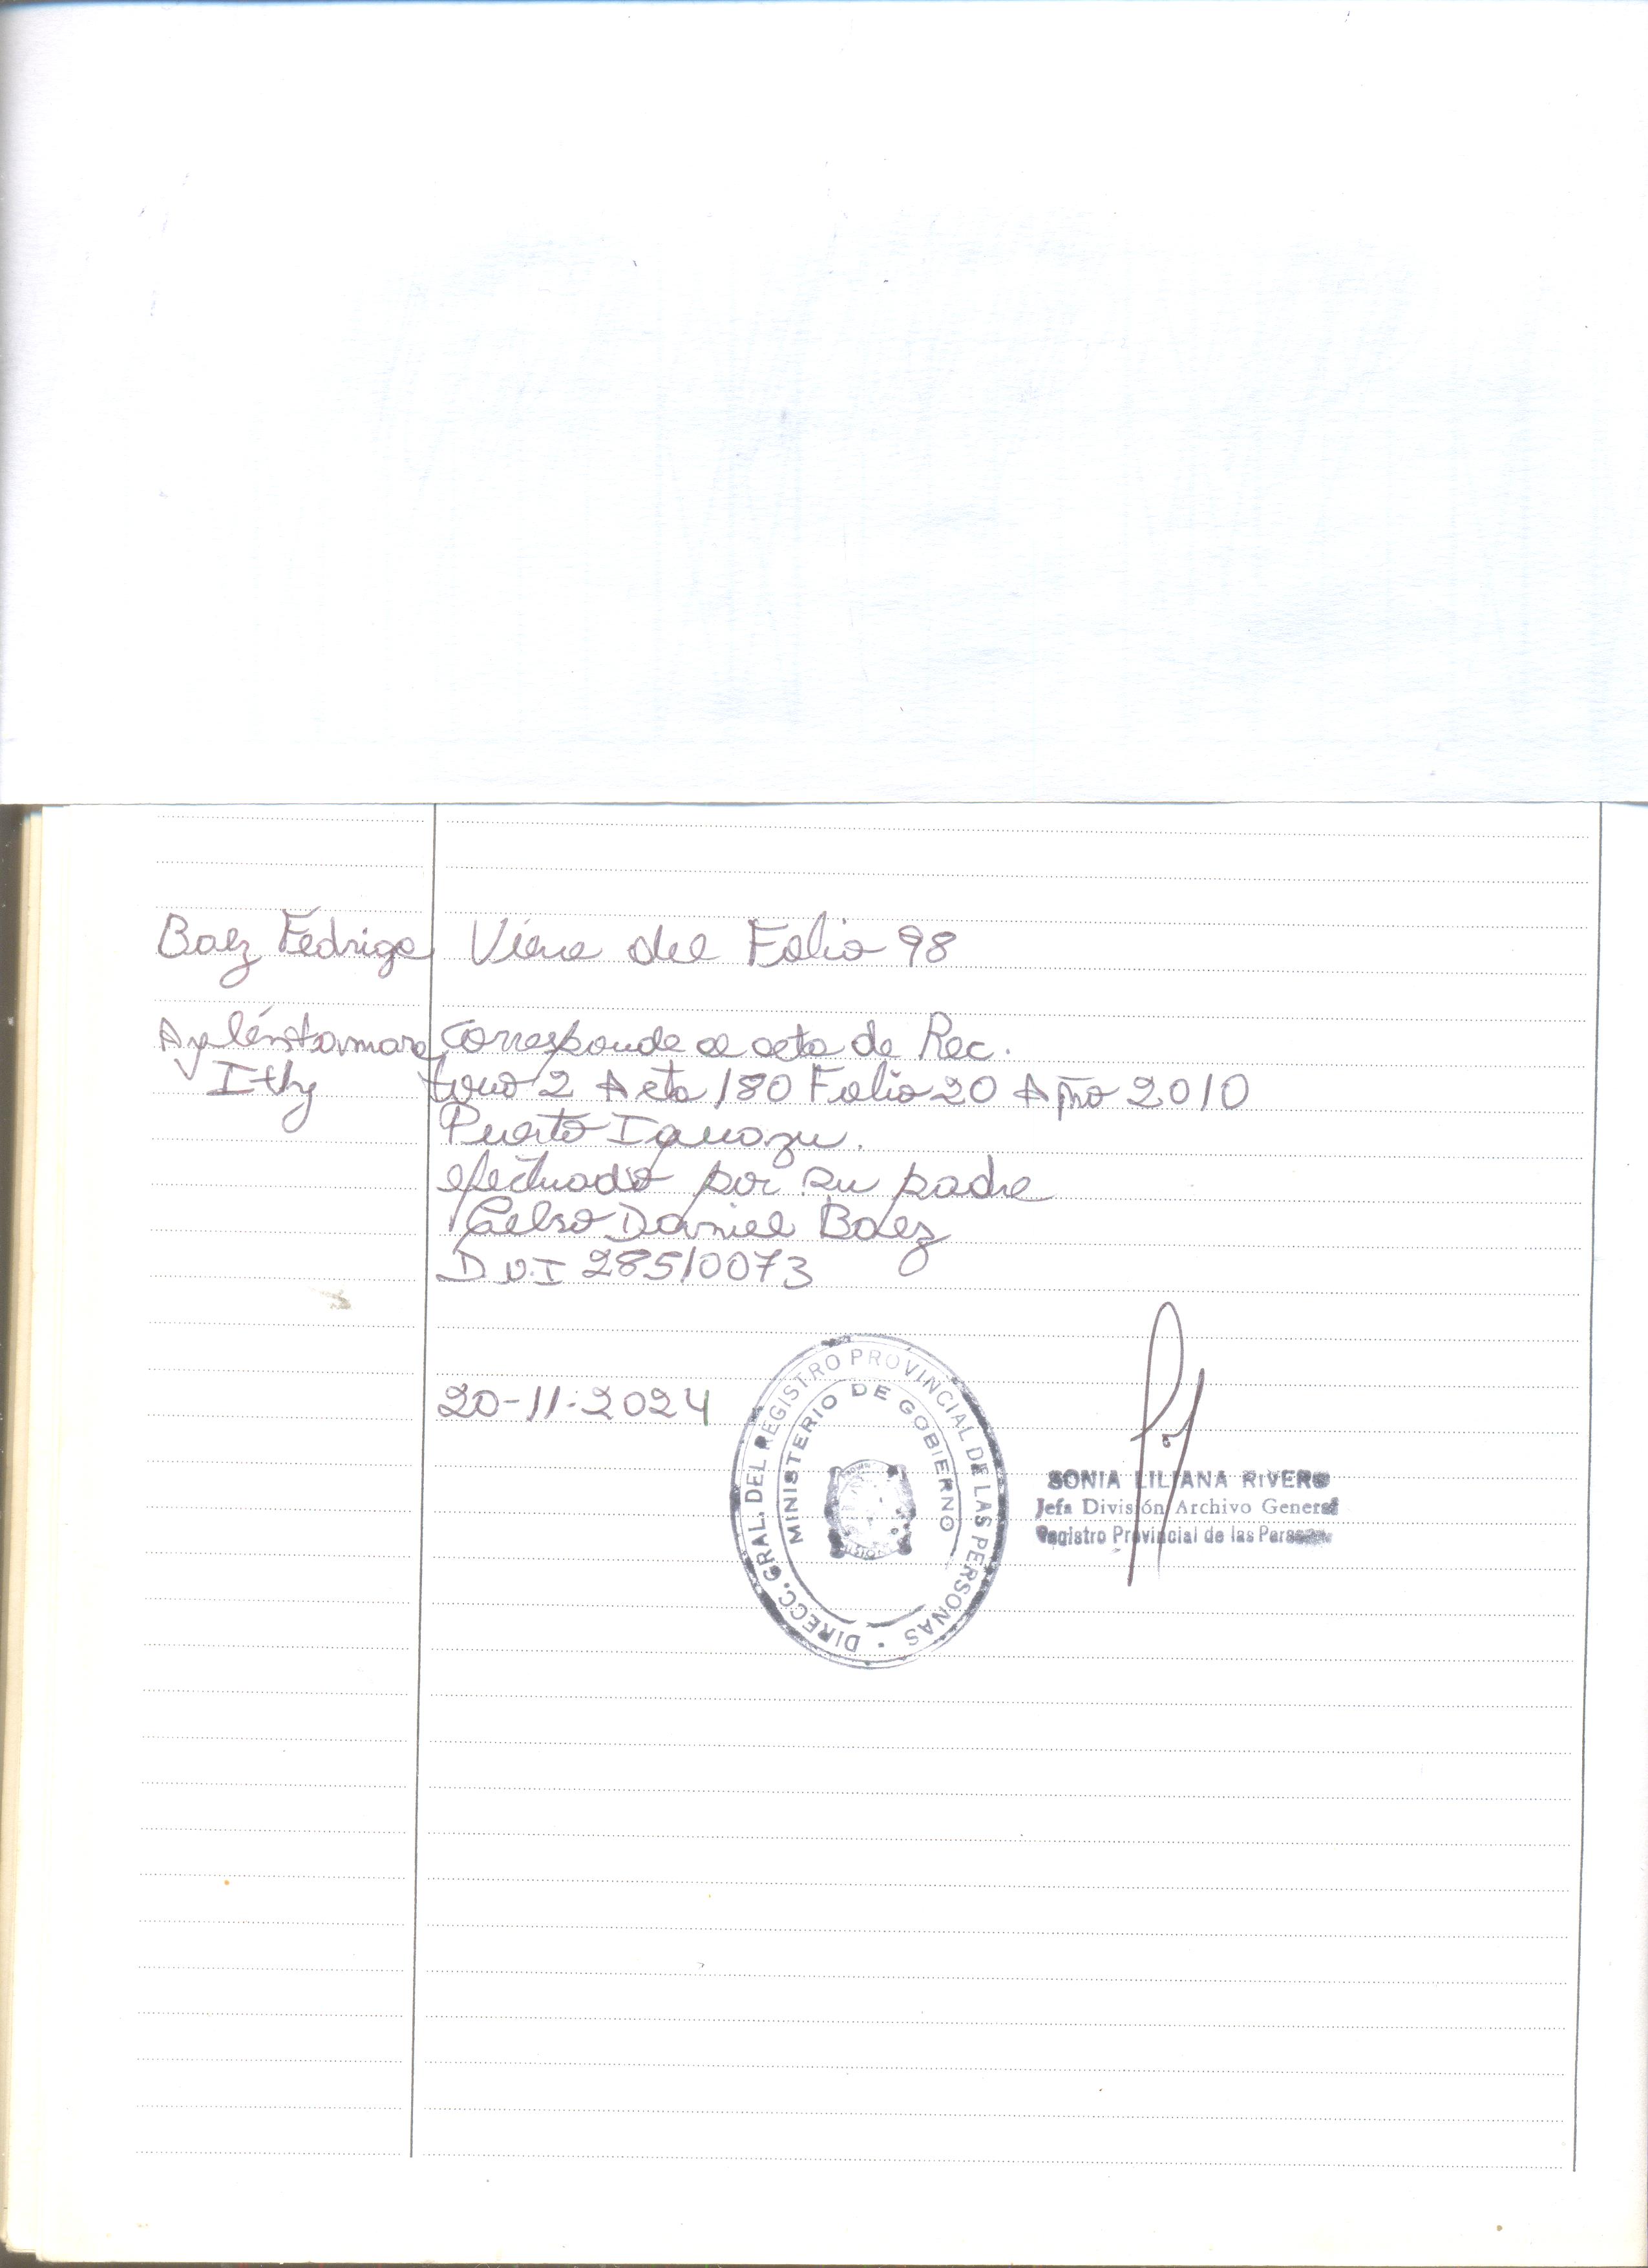 Baez Fedrigo Viene del Folio 98
Aylén tamara corresponde a acta de Rec.
Ithy tomo 2 Acta 180 Folio 20 Año 2010
Puerto Iguazu.
efectuado por su padre
Celso Daniel Baez
D.N.I 28510073
20-11-2024
DIRECC. GRAL. DEL REGISTRO PROVINCIAL DE LAS PERSONAS
MINISTERIO DE GOBIERNO
SONIA LILIANA RIVERO
Jefa División Archivo General
Registro Provincial de las Personas